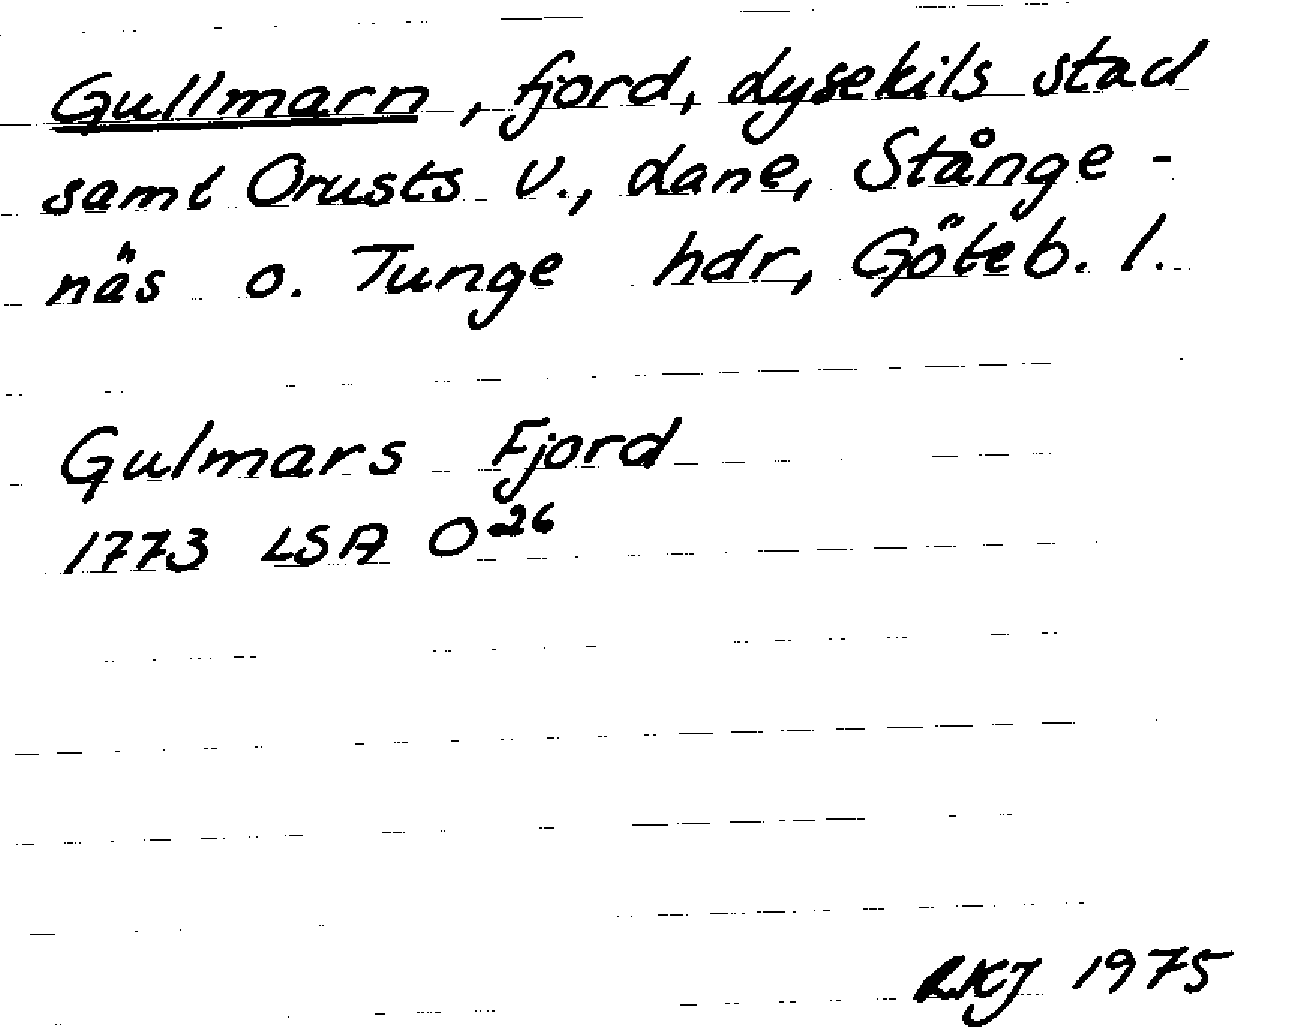 Gullmarn, fjord, Lysekils stad
samt Orusts V., Lane, Stånge-
näs o. Tunge hdr, Göteb. l.
Gulmars Fjord
1773 LSA O26
RKJ 1975